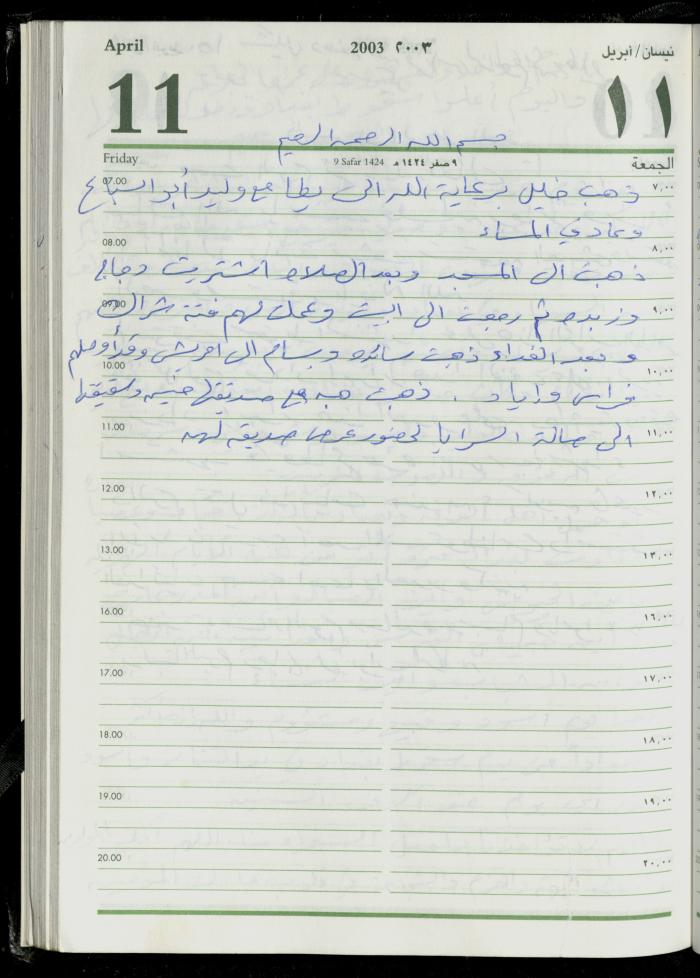 April 2003 ٢٠٠٣ نيسان/أبريل
11 ١١
بسم الله الرحمن الرحيم
Friday 9 Safar 1424 ٩ صفر ١٤٢٤ هـ الجمعة
07.00 ذهب خليل برعاية الله الى مع وليد أبو السباع ٧,٠٠
وعاد في المساء
08.00 ٨,٠٠
ذهبت الى المسجد وبعد الصلاه اشتريت دجاج
09.00 وزبده ثم رجعت الى البيت وعملت لهم فتة شراك ٩,٠٠
وبعد الغداء ذهبت سائده وبسام الى وقد أوصلهم
10.00 ١٠,٠٠
فراس واياد . ذهبت هبه مع صديقتها وشقيقتها
11.00 الى صالة السرايا لحضور عرس صديقه لهن ١١,٠٠
12.00 ١٢,٠٠
13.00 ١٣,٠٠
16.00 ١٦,٠٠
17.00 ١٧,٠٠
18.00 ١٨,٠٠
19.00 ١٩,٠٠
20.00 ٢٠,٠٠